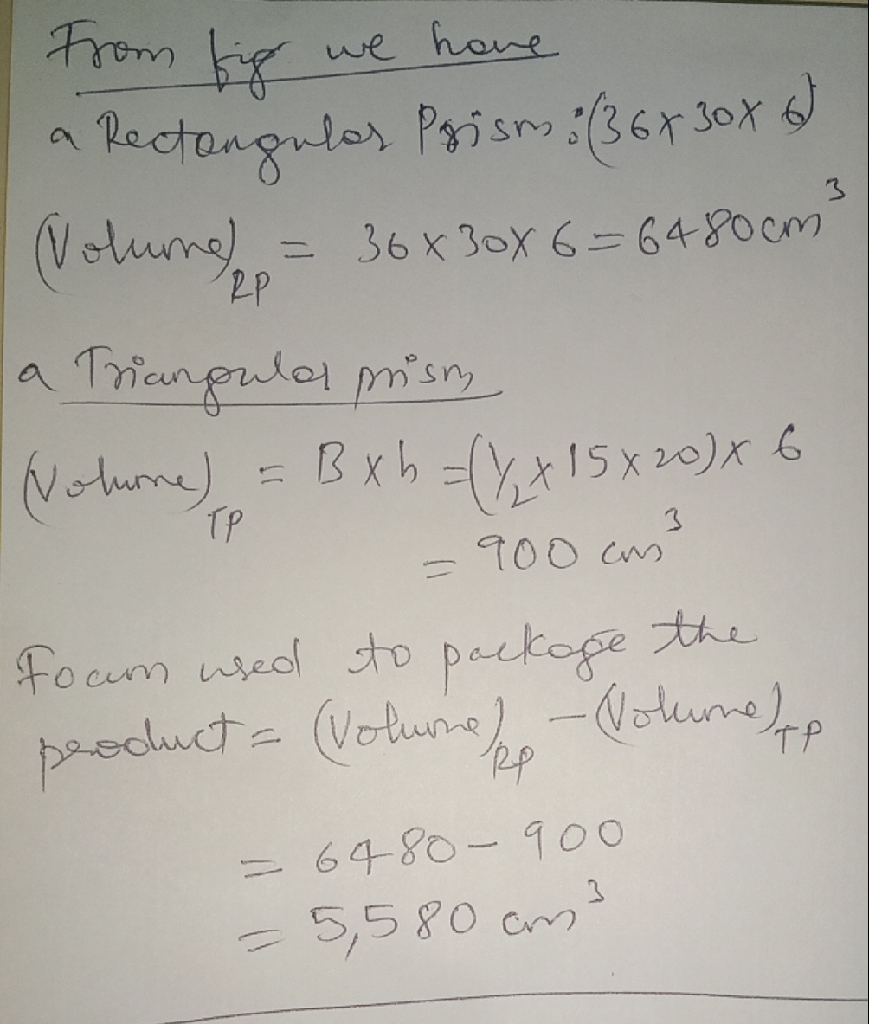 From fig we have
a Rectangular Prism : (36 x 30 x 6)
(Volume)RP = 36 x 30 x 6 = 6480 cm³
a Triangular prism
(Volume)TP = B x h = (1/2 x 15 x 20) x 6
= 900 cm³
Foam used to package the
product = (Volume)RP - (Volume)TP
= 6480 - 900
= 5,580 cm³